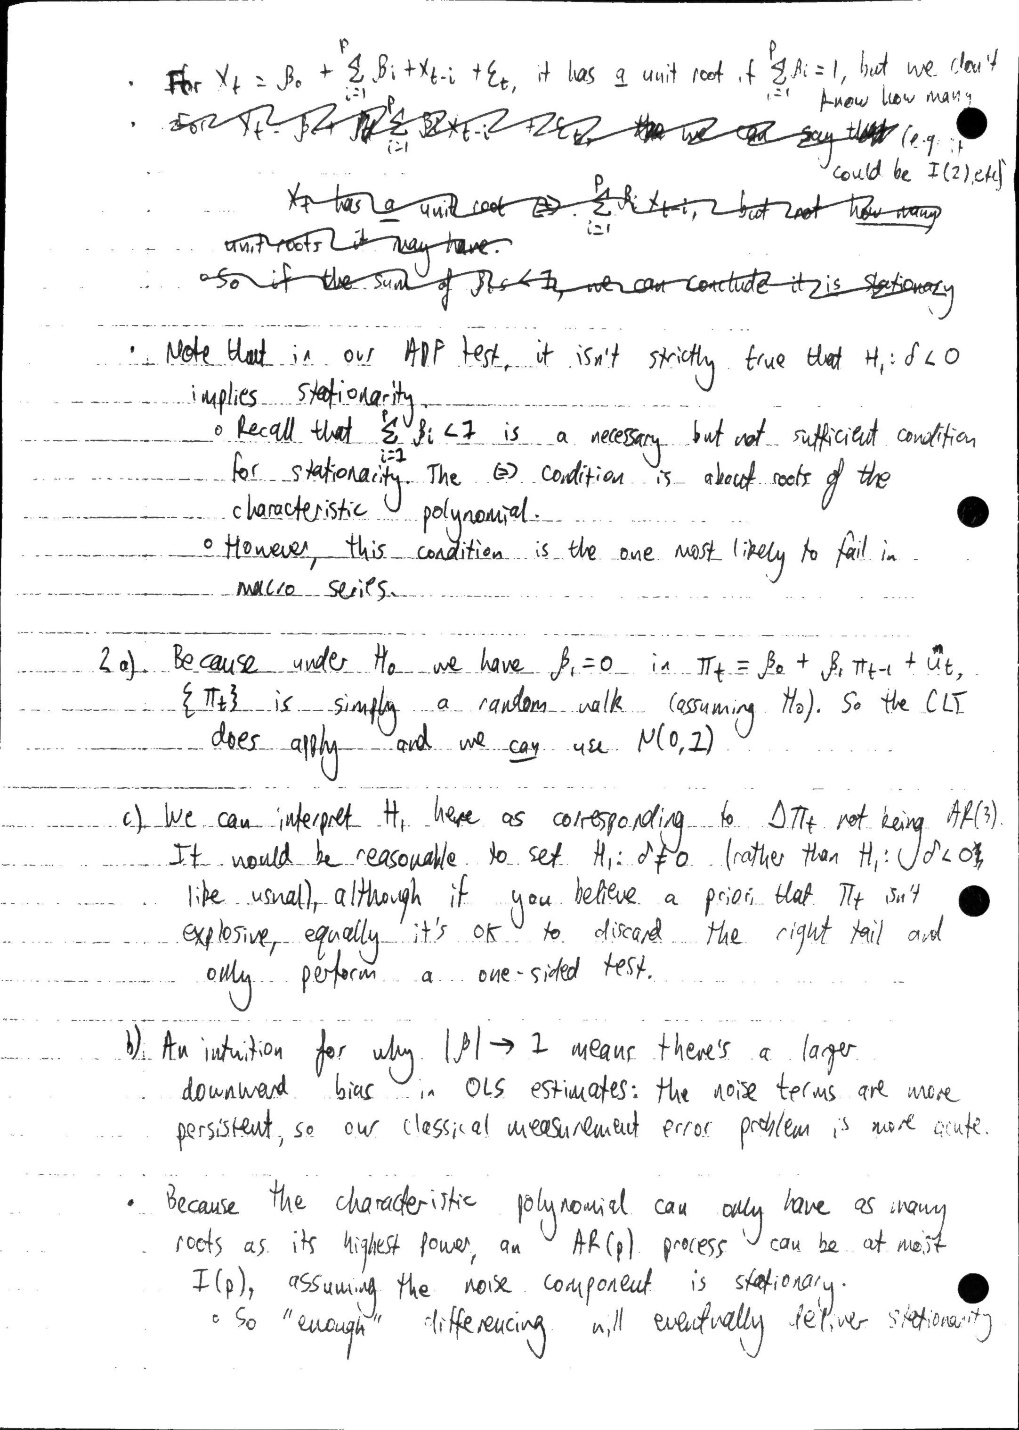 · For Xt = β₀ + Σᵖᵢ₌₁ βi + Xt-i + εt, it has a unit root if Σᵖᵢ₌₁ βi = 1, but we don't
know how many
· For Xt = β + Σᵖᵢ₌₁ β Xt-i + εt, we can say that (e.g. it
could be I(2), etc)
Xt has a unit root ⇔ Σᵖᵢ₌₁ βi Xt-i, but not how many
unit roots it may have.
∘ So if the sum of βis < 1, we can conclude it is stationary
· Note that in our ADF test, it isn't strictly true that H₁: δ < 0
implies stationarity.
∘ Recall that Σᵖᵢ₌₁ βi < 1 is a necessary but not sufficient condition
for stationarity. The ⇔ condition is about roots of the
characteristic polynomial.
∘ However, this condition is the one most likely to fail in
macro series.
2 a). Because under H₀ we have β₁ = 0 in πt = β₀ + β₁ πt-1 + ut,
{πt} is simply a random walk (assuming H₀). So the CLT
does apply and we can use N(0,1)
c) We can interpret H₁ here as corresponding to Δπt not being AR(3).
It would be reasonable to set H₁: δ ≠ 0 (rather than H₁: δ < 0,
like usual), although if you believe a priori that πt isn't
explosive, equally it's OK to discard the right tail and
only perform a one-sided test.
b). An intuition for why |β| → 1 means there's a larger
downward bias in OLS estimates: the noise terms are more
persistent, so our classical measurement error problem is more acute.
· Because the characteristic polynomial can only have as many
roots as its highest power, an AR(p) process can be at most
I(p), assuming the noise component is stationary.
∘ So "enough" differencing will eventually deliver stationarity